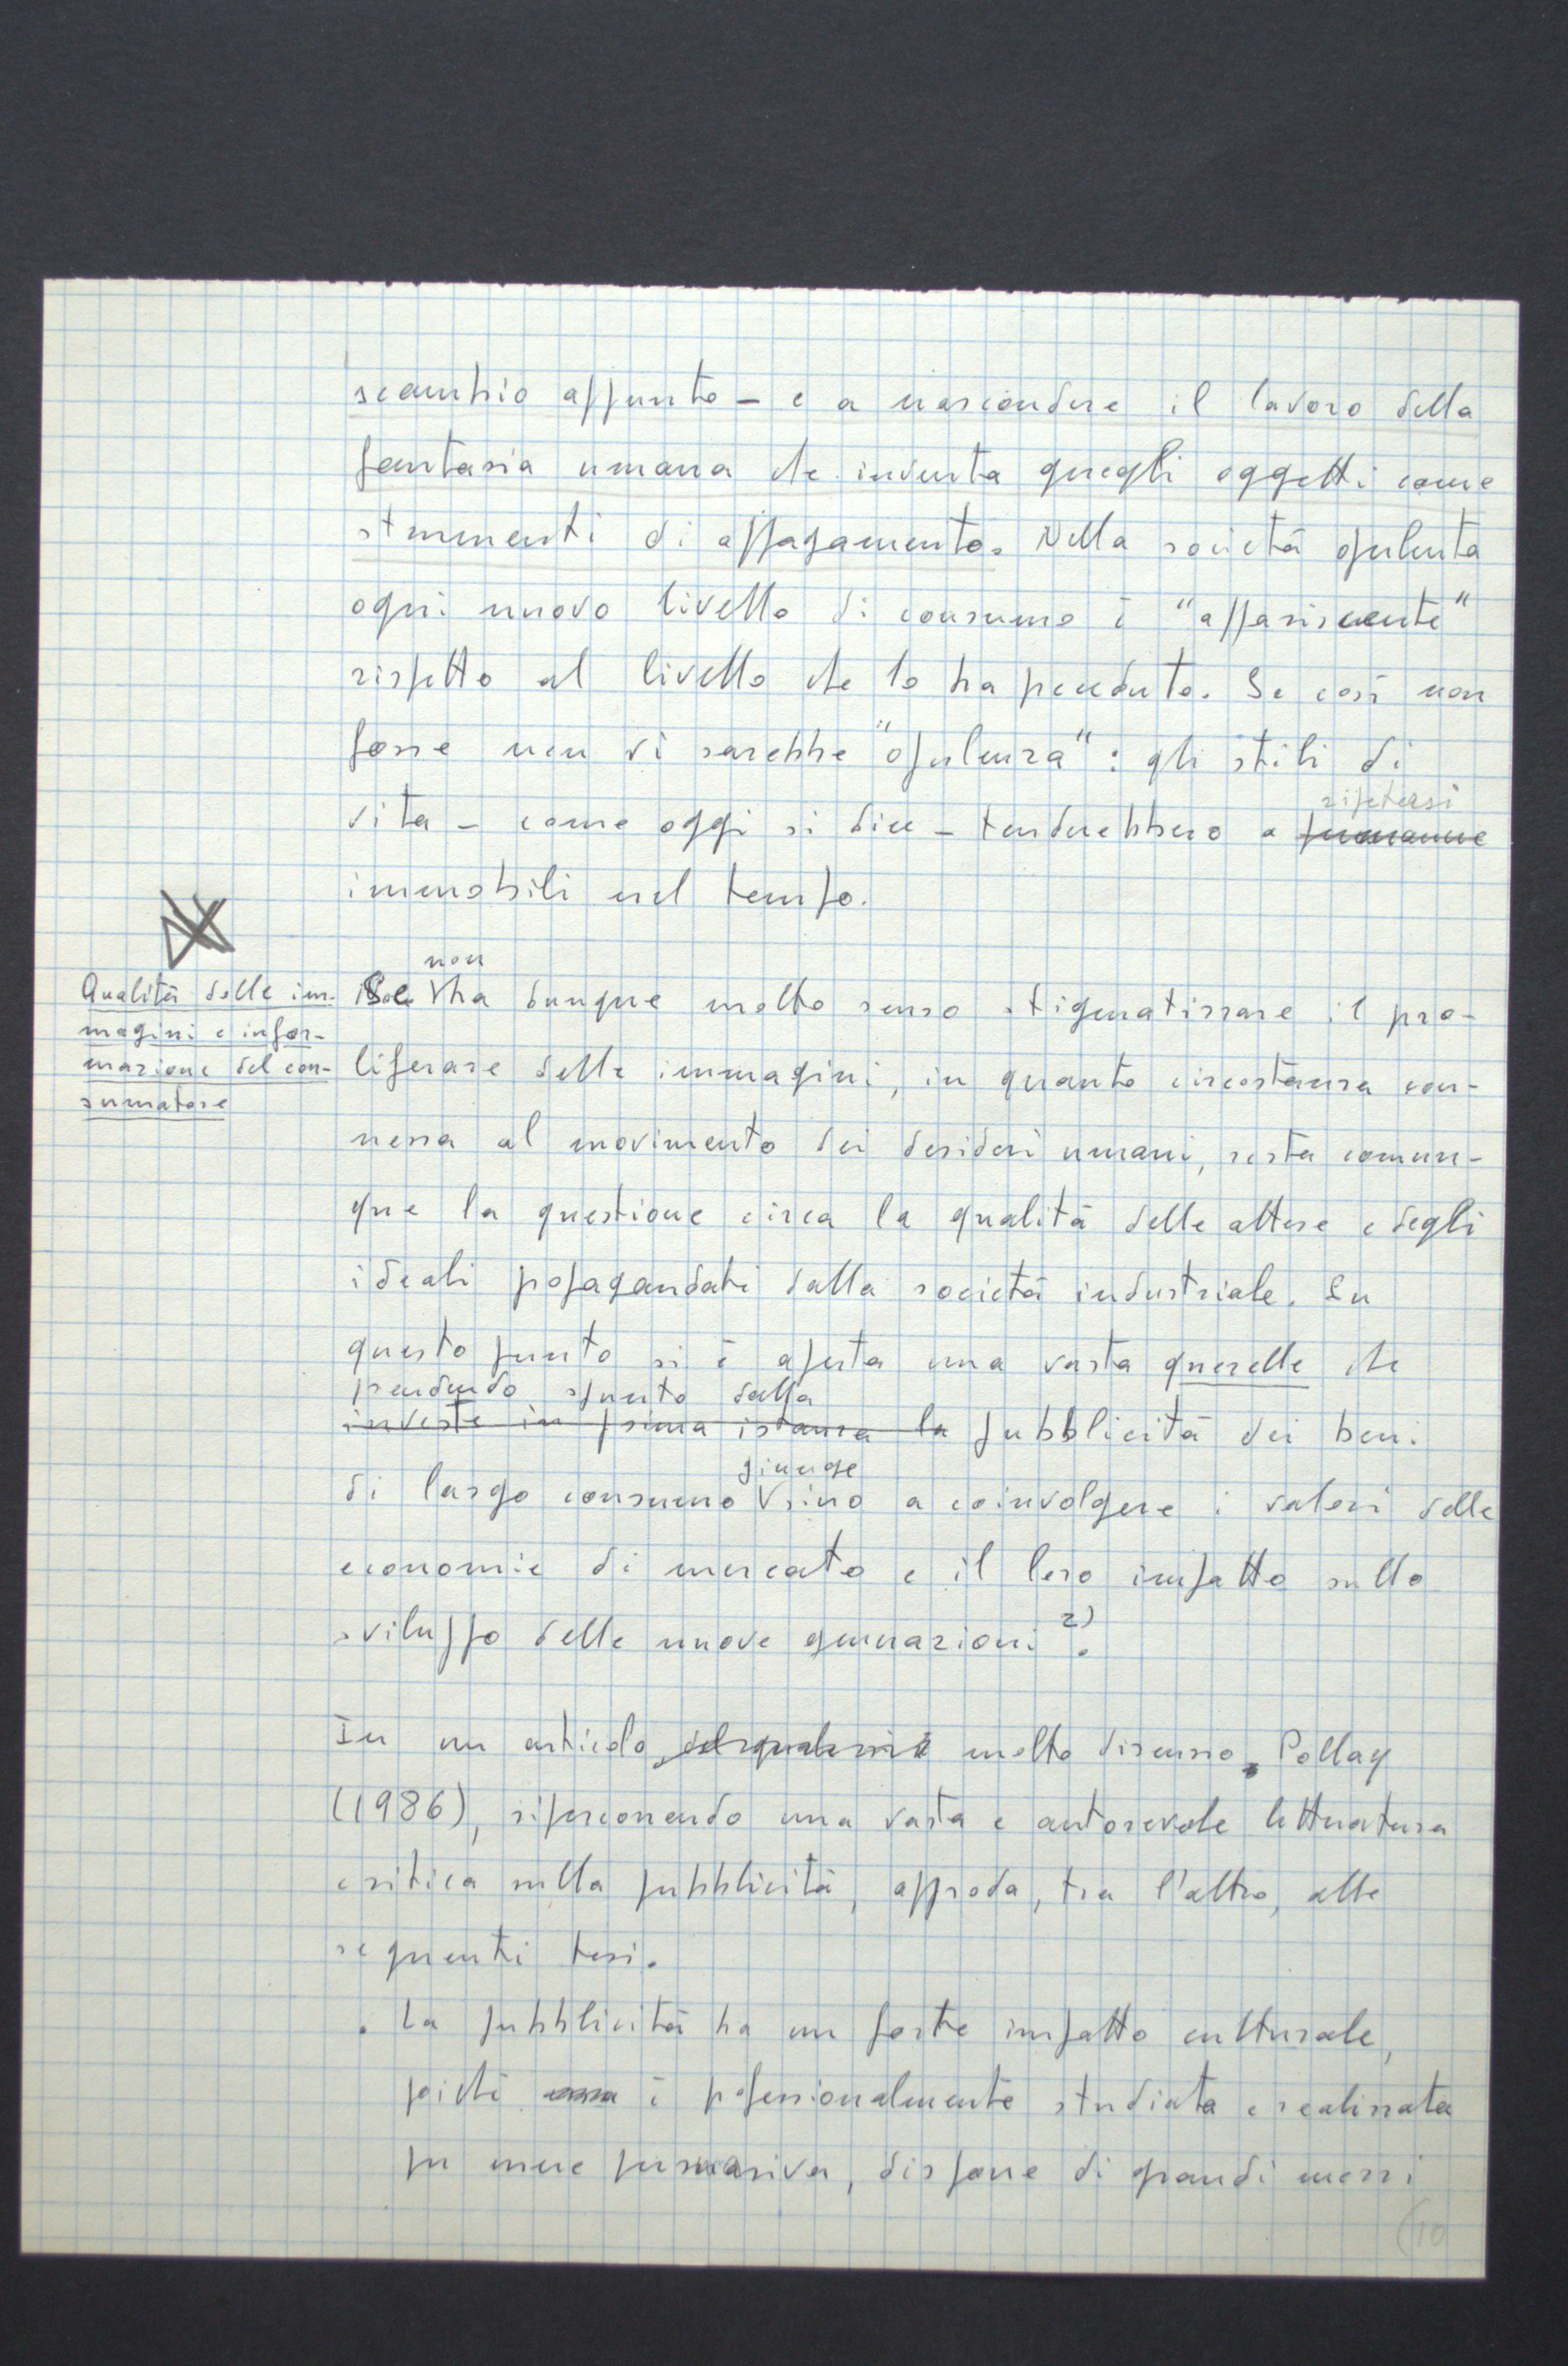 scambio appunto – e a nascondere il lavoro della
fantasia umana che inventa quegli oggetti come
strumenti di appagamento. Nella società opulenta
ogni nuovo livello di consumo è "appariscente"
rispetto al livello che lo ha preceduto. Se così non
fosse non vi sarebbe "opulenza": gli stili di
ripetersi
vita – come oggi si dice – tenderebbero a permanere
immobili nel tempo.
Qualità delle im-
magini e infor-
mazione del con-
sumatore
non
Se ha dunque molto senso stigmatizzare il pro-
liferare delle immagini, in quanto circostanza con-
nessa al movimento dei desideri umani, resta comun-
que la questione circa la qualità delle attese e degli
ideali propagandati dalla società industriale. Su
questo punto si è aperta una vasta querelle che
prendendo spunto dalla
investe in prima istanza la pubblicità dei beni
giunge
di largo consumo sino a coinvolgere i valori delle
economie di mercato e il loro impatto sullo
sviluppo delle nuove generazioni 2).
In un articolo molto discusso, Pollay
(1986), ripercorrendo una vasta e autorevole letteratura
critica sulla pubblicità, approda, tra l'altro, alle
seguenti tesi.
. La pubblicità ha un forte impatto culturale,
poiché essa è professionalmente studiata e realizzata
per essere persuasiva, dispone di grandi mezzi
(10